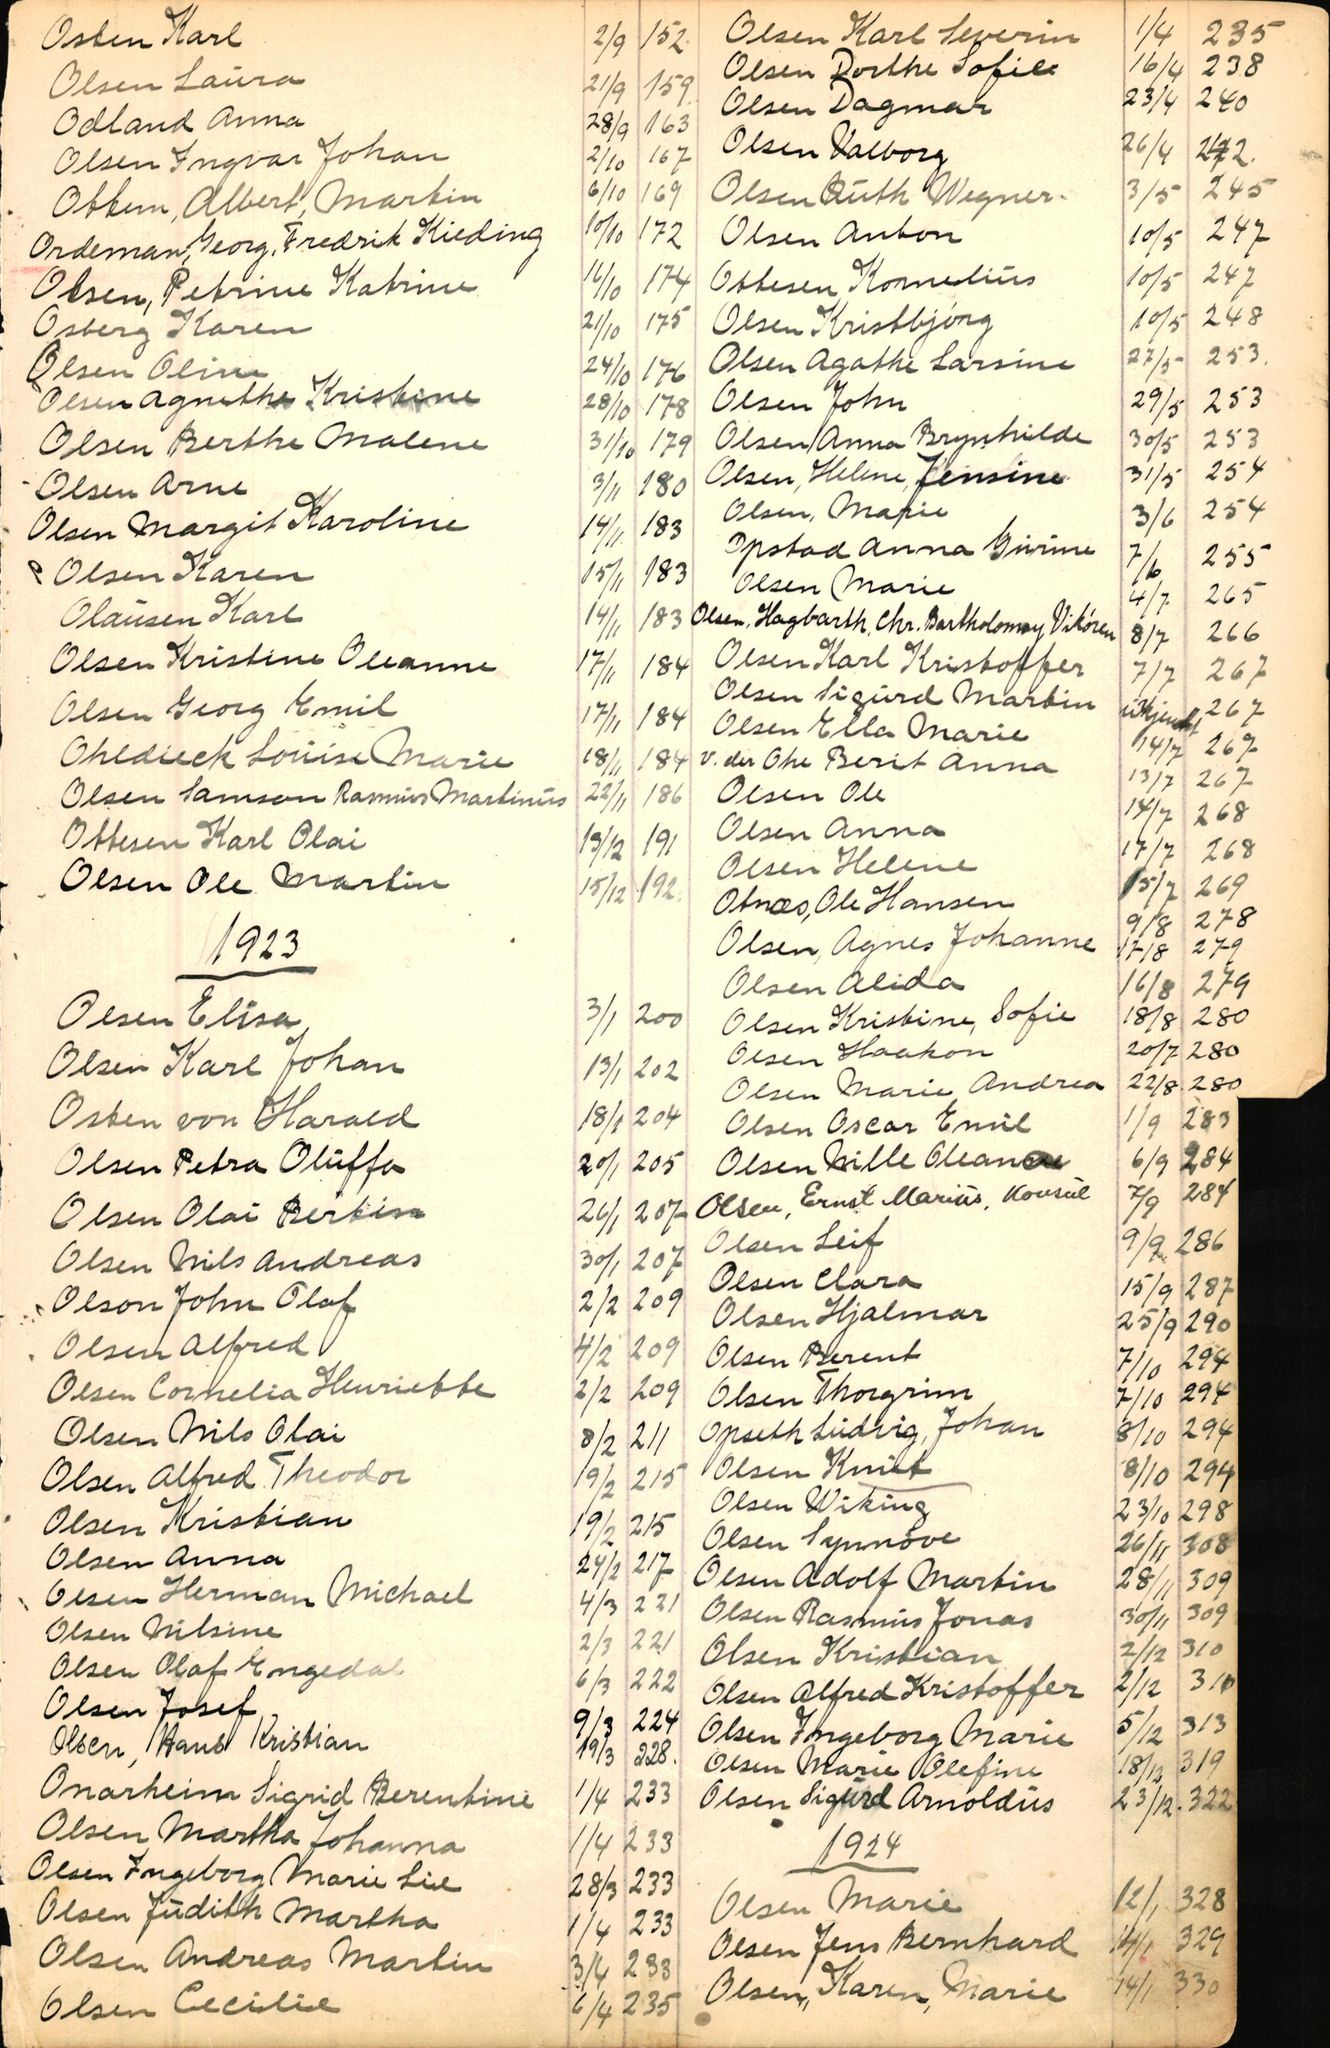 Osten Karl 2/9 152
Olsen Laura 21/9 159
Odland Anna 28/9 163
Olsen Ingvar Johan 2/10 167
Ottem, Albert, Martin 6/10 169
Ordeman, Georg, Fredrik Kieding 10/10 172
Olsen, Petrine Katrine 16/10 174
Osberg Karen 21/10 175
Olsen Oline 24/10 176
Olsen Agnethe Kristine 28/10 178
Olsen Berthe Malene 31/10 179
Olsen Arne 3/11 180
Olsen Margit Karoline 14/11 183
Olsen Karen 15/11 183
Olausen Karl 14/11 183
Olsen Kristine Oleanne 17/11 184
Olsen Georg Emil 17/11 184
Ohldieck Louise Marie 18/11 184
Olsen Samson Rasmus Martinus 22/11 186
Ottesen Karl Olai 13/12 191
Olsen Ole Martin 15/12 192
1923
Olsen Elisa 3/1 200
Olsen Karl Johan 13/1 202
Osten von Harald 18/1 204
Olsen Petra Oluffa 20/1 205
Olsen Olai Bertin 26/1 207
Olsen Nils Andreas 30/1 207
Olson John Olaf 2/2 209
Olsen Alfred 4/2 209
Olsen Cornelia Henriette 2/2 209
Olsen Nils Olai 8/2 211
Olsen Alfred Theodor 19/2 215
Olsen Kristian 19/2 215
Olsen Anna 24/2 217
Olsen Herman Michael 4/3 221
Olsen Nilsine 2/3 221
Olsen Olaf Engedal 6/3 222
Olsen Josef 9/3 224
Olsen, Hans Kristian 19/3 228.
Onarheim Sigrid Berentine 1/4 233
Olsen Martha Johanna 1/4 233
Olsen Ingeborg Marie Lie 28/3 233
Olsen Judith Martha 1/4 233
Olsen Andreas Martin 3/4 233
Olsen Cecilie 6/4 235
Olsen Karl Severin 1/4 235
Olsen Dorthe Sofie 16/4 238
Olsen Dagmar 23/4 240
Olsen Valborg 26/4 242.
Olsen Ruth Wegner. 3/5 245
Olsen Anton 10/5 247
Ottesen Kornelius 10/5 247
Olsen Kristbjörg 10/5 248
Olsen Agathe Larsine 27/5 253.
Olsen John 29/5 253
Olsen Anna Brynhilde 30/5 253
Olsen, Helene, Jensine 31/5 254
Olsen, Marie 3/6 254
Opstad Anna Gurine 7/6 255
Olsen Marie 4/7 265
Olsen, Hagbarth, Chr. Bartholomey Vikören 8/7 266
Olsen Karl Kristoffer 7/7 267
Olsen Sigurd Martin ukjendt 267
Olsen Ella Marie 14/7 267
v. der Ohe Berit Anna 13/7 267
Olsen Ole 14/7 268
Olsen Anna 17/7 268
Olsen Helene 15/7 269
Otnæs, Ole Hansen 9/8 278
Olsen, Agnes Johanne 17/8 279
Olsen Alida 16/8 279
Olsen Kristine, Sofie 18/8 280
Olsen Haakon 20/7 280
Olsen Marie Andrea 22/8 280
Olsen Oscar Emil 1/9 283
Olsen Nille 6/9 284
Olsen, Ernst Marius, Konsul 7/9 284
Olsen Leif 9/9 286
Olsen Clara 15/9 287
Olsen Hjalmar 25/9 290
Olsen Berent 7/10 294
Olsen Thorgrim 7/10 294
Opseth Ludvig, Johan 8/10 294
Olsen Knut 8/10 294
Olsen Wiking 23/10 298
Olsen Synnöve 26/11 308
Olsen Adolf Martin 28/11 309
Olsen Rasmus Jonas 30/11 309
Olsen Kristian 2/12 310
Olsen Alfred Kristoffer 2/12 310
Olsen Ingeborg Marie 5/12 313
Olsen Marie Olefine 18/12 319
Olsen Sigurd Arnoldus 23/12. 322
1924
Olsen Marie 12/1 328
Olsen Jens Bernhard 14/1 329
Olsen, Karen, Marie 14/1 330